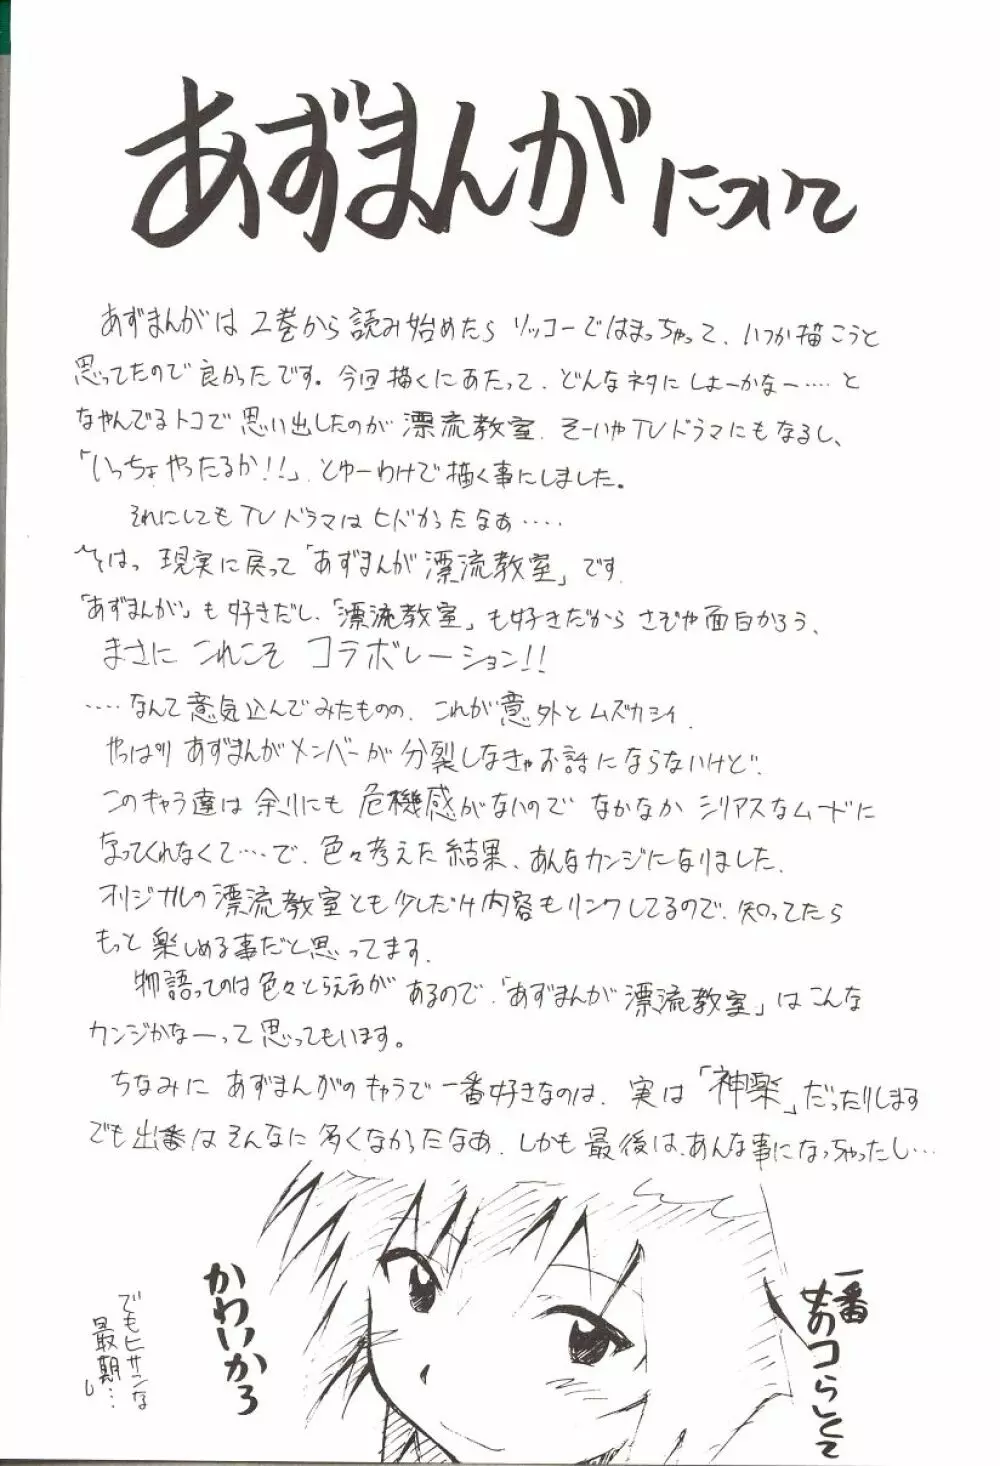 あずまんがについて
あずまんがは2巻から読み始めたら リッコーではまっちゃって、いつか描こうと
思ってたので良かったです。今回描くにあたって、どんなネタにしよーかなー‥‥と
なやんでるトコで思い出したのが漂流教室、そーいやTVドラマにもなるし、
「いっちょやったるか!!」とゆーわけで描く事にしました。
それにしてもTVドラマはヒドかったなぁ‥‥
現実に戻って「あずまんが漂流教室」です
「あずまんが」も好きだし、「漂流教室」も好きだから さぞや面白かろう、
まさに これこそ コラボレーション!!
‥‥なんて意気込んでみたものの、これが意外とムズカシイ、
やっぱりあずまんがメンバーが分裂しなきゃお話にならないけど、
このキャラ達は余りにも危機感がないので なかなか シリアスなムードに
なってくれなくて‥‥で、色々考えた結果、あんなカンジになりました、
オリジナルの漂流教室とも少しだけ内容もリンクしてるので、知ってたら
もっと楽しめる事だと思ってます、
物語ってのは色々とらえ方があるので、「あずまんが漂流教室」はこんな
カンジかなーって思ってもいます。
ちなみに あずまんがのキャラで一番好きなのは、実は「神楽」だったりします
でも出番はそんなに多くなかったなあ、しかも最後は、あんな事になっちゃったし‥‥
一番
オコらしくて
かわいかろ
でもヒサンな
最期‥‥